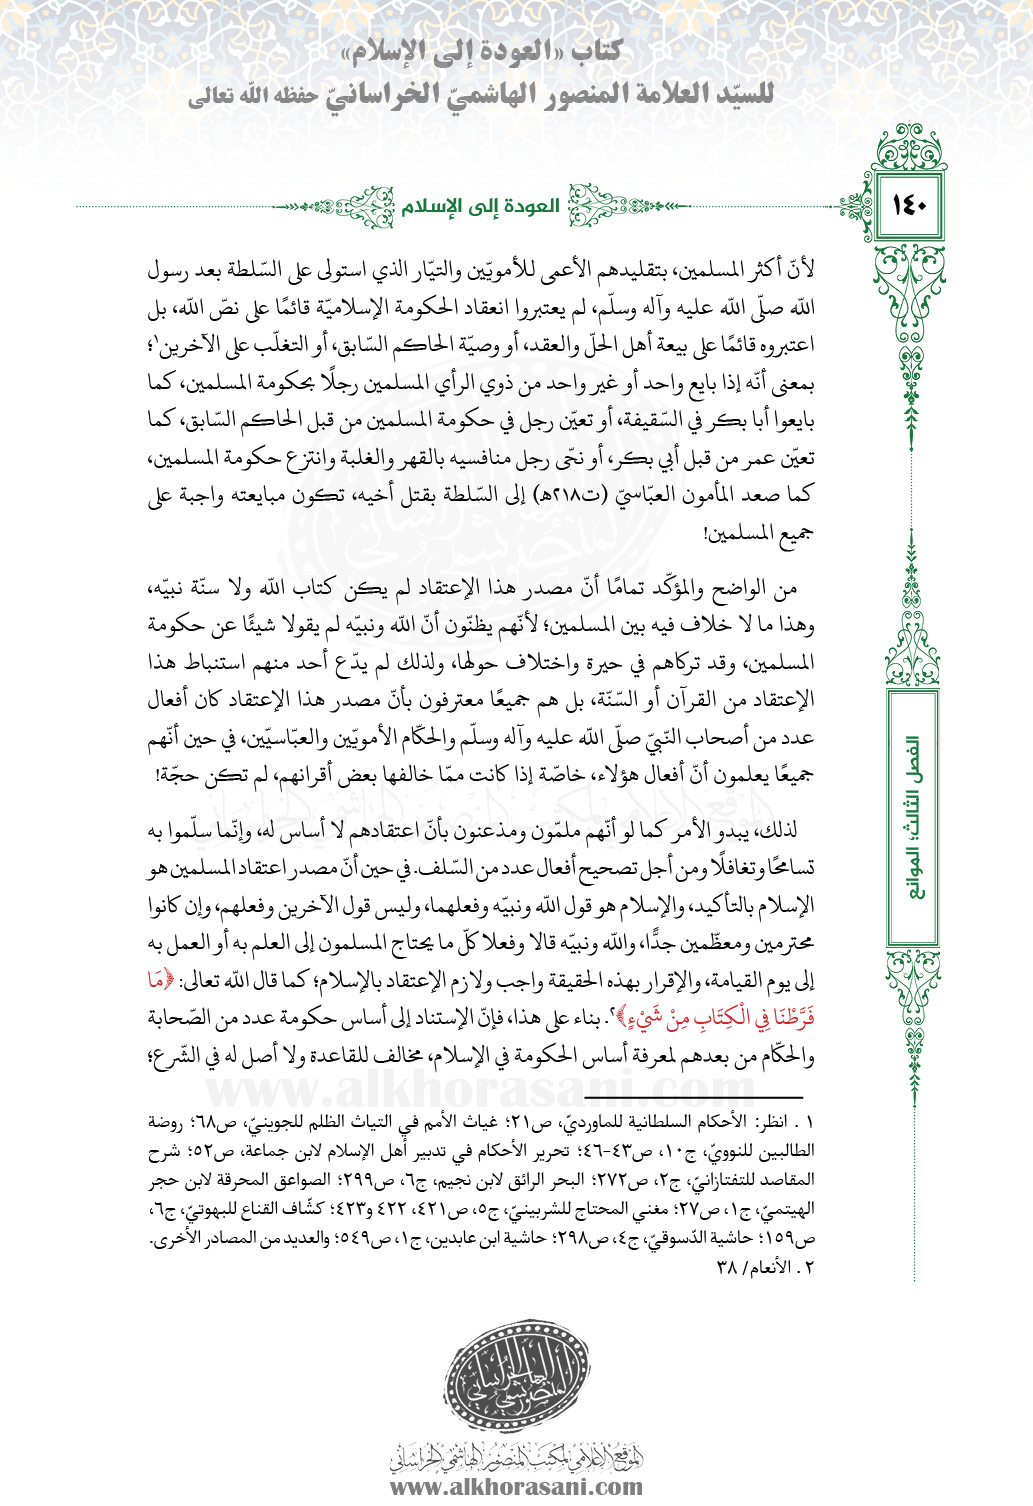 كتاب «العودة إلى الإسلام»
للسيّد العلامة المنصور الهاشميّ الخراسانيّ حفظه الله تعالى
١٤٠
العودة إلى الإسلام
لأنّ أكثر المسلمين، بتقليدهم الأعمى للأمويّين والتيّار الذي استولى على السّلطة بعد رسول
الله صلّى الله عليه وآله وسلّم، لم يعتبروا انعقاد الحكومة الإسلاميّة قائمًا على نصّ الله، بل
اعتبروه قائمًا على بيعة أهل الحلّ والعقد، أو وصيّة الحاكم السّابق، أو التغلّب على الآخرين١؛
بمعنى أنّه إذا بايع واحد أو غير واحد من ذوي الرأي المسلمين رجلًا بحكومة المسلمين، كما
بايعوا أبا بكر في السّقيفة، أو تعيّن رجل في حكومة المسلمين من قبل الحاكم السّابق، كما
تعيّن عمر من قبل أبي بكر، أو نحّى رجل منافسيه بالقهر والغلبة وانتزع حكومة المسلمين،
كما صعد المأمون العبّاسيّ (ت٢١٨هـ) إلى السّلطة بقتل أخيه، تكون مبايعته واجبة على
جميع المسلمين!
من الواضح والمؤكّد تمامًا أنّ مصدر هذا الإعتقاد لم يكن كتاب الله ولا سنّة نبيّه،
وهذا ما لا خلاف فيه بين المسلمين؛ لأنّهم يظنّون أنّ الله ونبيّه لم يقولا شيئًا عن حكومة
المسلمين، وقد تركاهم في حيرة واختلاف حولها، ولذلك لم يدّع أحد منهم استنباط هذا
الإعتقاد من القرآن أو السّنّة، بل هم جميعًا معترفون بأنّ مصدر هذا الإعتقاد كان أفعال
عدد من أصحاب النّبيّ صلّى الله عليه وآله وسلّم والحكّام الأمويّين والعبّاسيّين، في حين أنّهم
جميعًا يعلمون أنّ أفعال هؤلاء، خاصّة إذا كانت ممّا خالفها بعض أقرانهم، لم تكن حجّة!
لذلك، يبدو الأمر كما لو أنّهم ملمّون ومذعنون بأنّ اعتقادهم لا أساس له، وإنّما سلّموا به
تسامحًا وتغافلًا ومن أجل تصحيح أفعال عدد من السّلف. في حين أنّ مصدر اعتقاد المسلمين هو
الإسلام بالتأكيد، والإسلام هو قول الله ونبيّه وفعلهما، وليس قول الآخرين وفعلهم، وإن كانوا
محترمين ومعظّمين جدًّا، والله ونبيّه قالا وفعلا كلّ ما يحتاج المسلمون إلى العلم به أو العمل به
إلى يوم القيامة، والإقرار بهذه الحقيقة واجب ولازم الإعتقاد بالإسلام؛ كما قال الله تعالى: ﴿مَا
فَرَّطْنَا فِي الْكِتَابِ مِنْ شَيْءٍ﴾٢. بناء على هذا، فإنّ الإستناد إلى أساس حكومة عدد من الصّحابة
والحكّام من بعدهم لمعرفة أساس الحكومة في الإسلام، مخالف للقاعدة ولا أصل له في الشّرع؛
الفصل الثالث؛ الموانع
١ . انظر: الأحكام السلطانية للماورديّ، ص٢١؛ غياث الأمم في التياث الظلم للجوينيّ، ص٦٨؛ روضة
الطالبين للنوويّ، ج١٠، ص٤٣-٤٦؛ تحرير الأحكام في تدبير أهل الإسلام لابن جماعة، ص٥٢؛ شرح
المقاصد للتفتازانيّ، ج٢، ص٢٧٢؛ البحر الرائق لابن نجيم، ج٦، ص٢٩٩؛ الصواعق المحرقة لابن حجر
الهيتميّ، ج١، ص٢٧؛ مغني المحتاج للشربينيّ، ج٥، ص٤٢١، ٤٢٢ و٤٢٣؛ كشّاف القناع للبهوتيّ، ج٦،
ص١٥٩؛ حاشية الدّسوقيّ، ج٤، ص٢٩٨؛ حاشية ابن عابدين، ج١، ص٥٤٩؛ والعديد من المصادر الأخرى.
٢ . الأنعام/ ٣٨
الموقع الإعلامي لمكتب المنصور الهاشمي الخراساني
www.alkhorasani.com